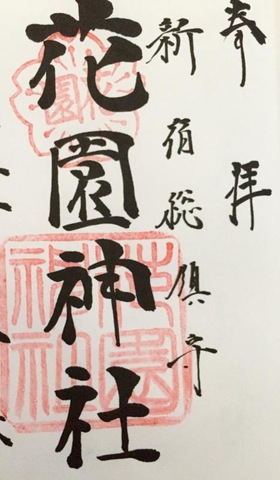 奉拝
新宿総鎮守
花園神社
花園神社